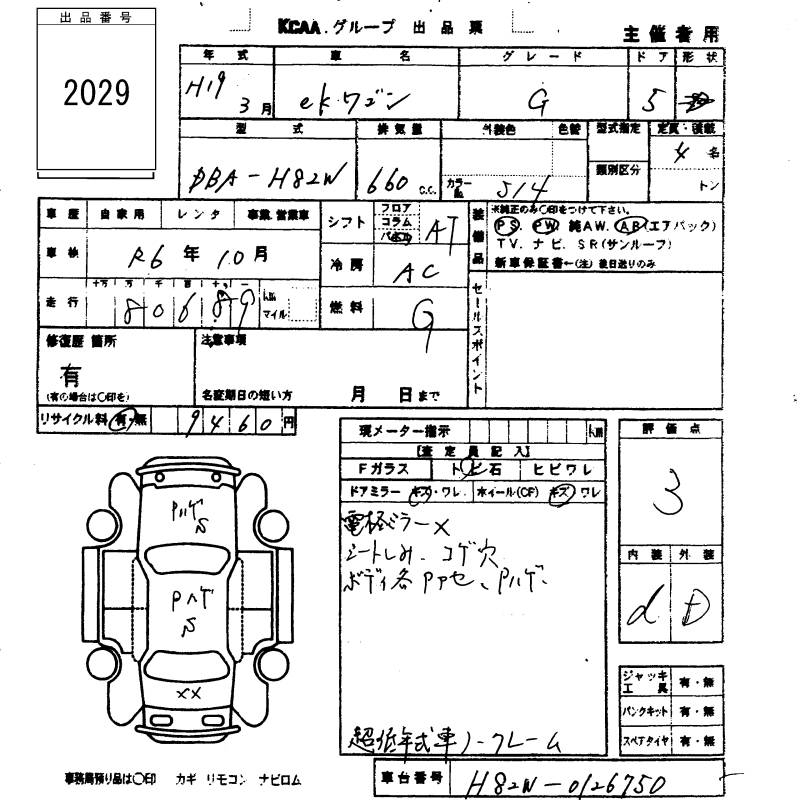 出品番号
2029
KCAA.グループ 出品票
主催者用
年式 車名 グレード ドア 形状
H19 3月 ek.ワゴン G 5
型式 排気量 外装色 色替 型式指定 定員・積載
類別区分
DBA-H82W 660 C.C. カラーNo. 514 4名
トン
車歴 自家用 レンタ 事業.営業車
シフト フロア コラム パネル AT
装備品
※純正のみ○印をつけて下さい。
PS. PW. 純AW. AB(エアバック)
TV. ナビ. SR(サンルーフ)
新車保証書←(注)後日送りのみ
車検 R6年10月
冷房 AC
走行 十万 万 千 百 十 一
80689 km マイル
燃料 G
セールスポイント
修復歴 箇所
有
(有の場合は○印を)
注意事項
名変期日の短い方 月 日まで
リサイクル料 有・無 9460円
現メーター指示 km
【査定員記入】
Fガラス トビ石 ヒビワレ
ドアミラー キズ・ワレ ホイール(CF) キズ ワレ
電格ミラー×
シートしみ、コゲ穴
ボディ各Pアセ、Pハゲ
超低年式車ノークレーム
評価点
3
内装 外装
d D
Pハゲ
S
Pハゲ
S
XX
ジャッキ工具 有・無
パンクキット 有・無
スペアタイヤ 有・無
事務局預り品は○印 カギ リモコン ナビロム
車台番号 H82W-0126750